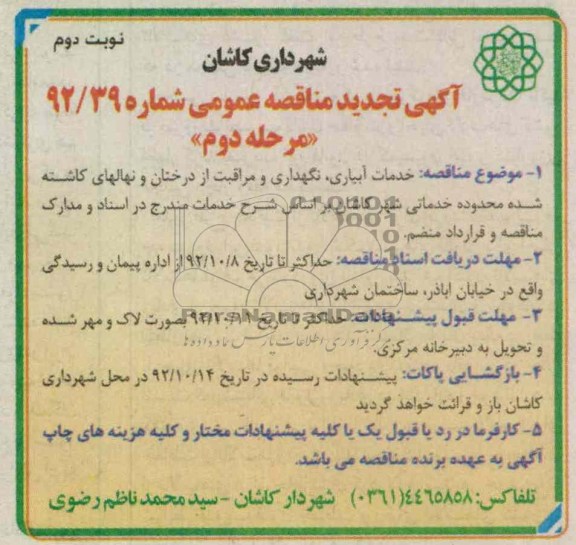 نوبت دوم
شهرداری کاشان
آگهی تجدید مناقصه عمومی شماره ۹۲/۳۹
«مرحله دوم»
۱- موضوع مناقصه: خدمات آبیاری، نگهداری و مراقبت از درختان و نهالهای کاشته
شده محدوده خدماتی شهر کاشان بر اساس شرح خدمات مندرج در اسناد و مدارک
مناقصه و قرارداد منضم.
۲- مهلت دریافت اسناد مناقصه: حداکثر تا تاریخ ۹۲/۱۰/۸ از اداره پیمان و رسیدگی
واقع در خیابان اباذر، ساختمان شهرداری
۳- مهلت قبول پیشنهادات: حداکثر تا تاریخ ۹۲/۱۰/۱۱ بصورت لاک و مهر شده
و تحویل به دبیرخانه مرکزی.
۴- بازگشایی پاکات: پیشنهادات رسیده در تاریخ ۹۲/۱۰/۱۴ در محل شهرداری
کاشان باز و قرائت خواهد گردید
۵- کارفرما در رد یا قبول یک یا کلیه پیشنهادات مختار و کلیه هزینه های چاپ
آگهی به عهده برنده مناقصه می باشد.
تلفاکس: ۴۴۶۵۸۵۸(۰۳۶۱) شهردار کاشان - سید محمد ناظم رضوی
ParsNamadData